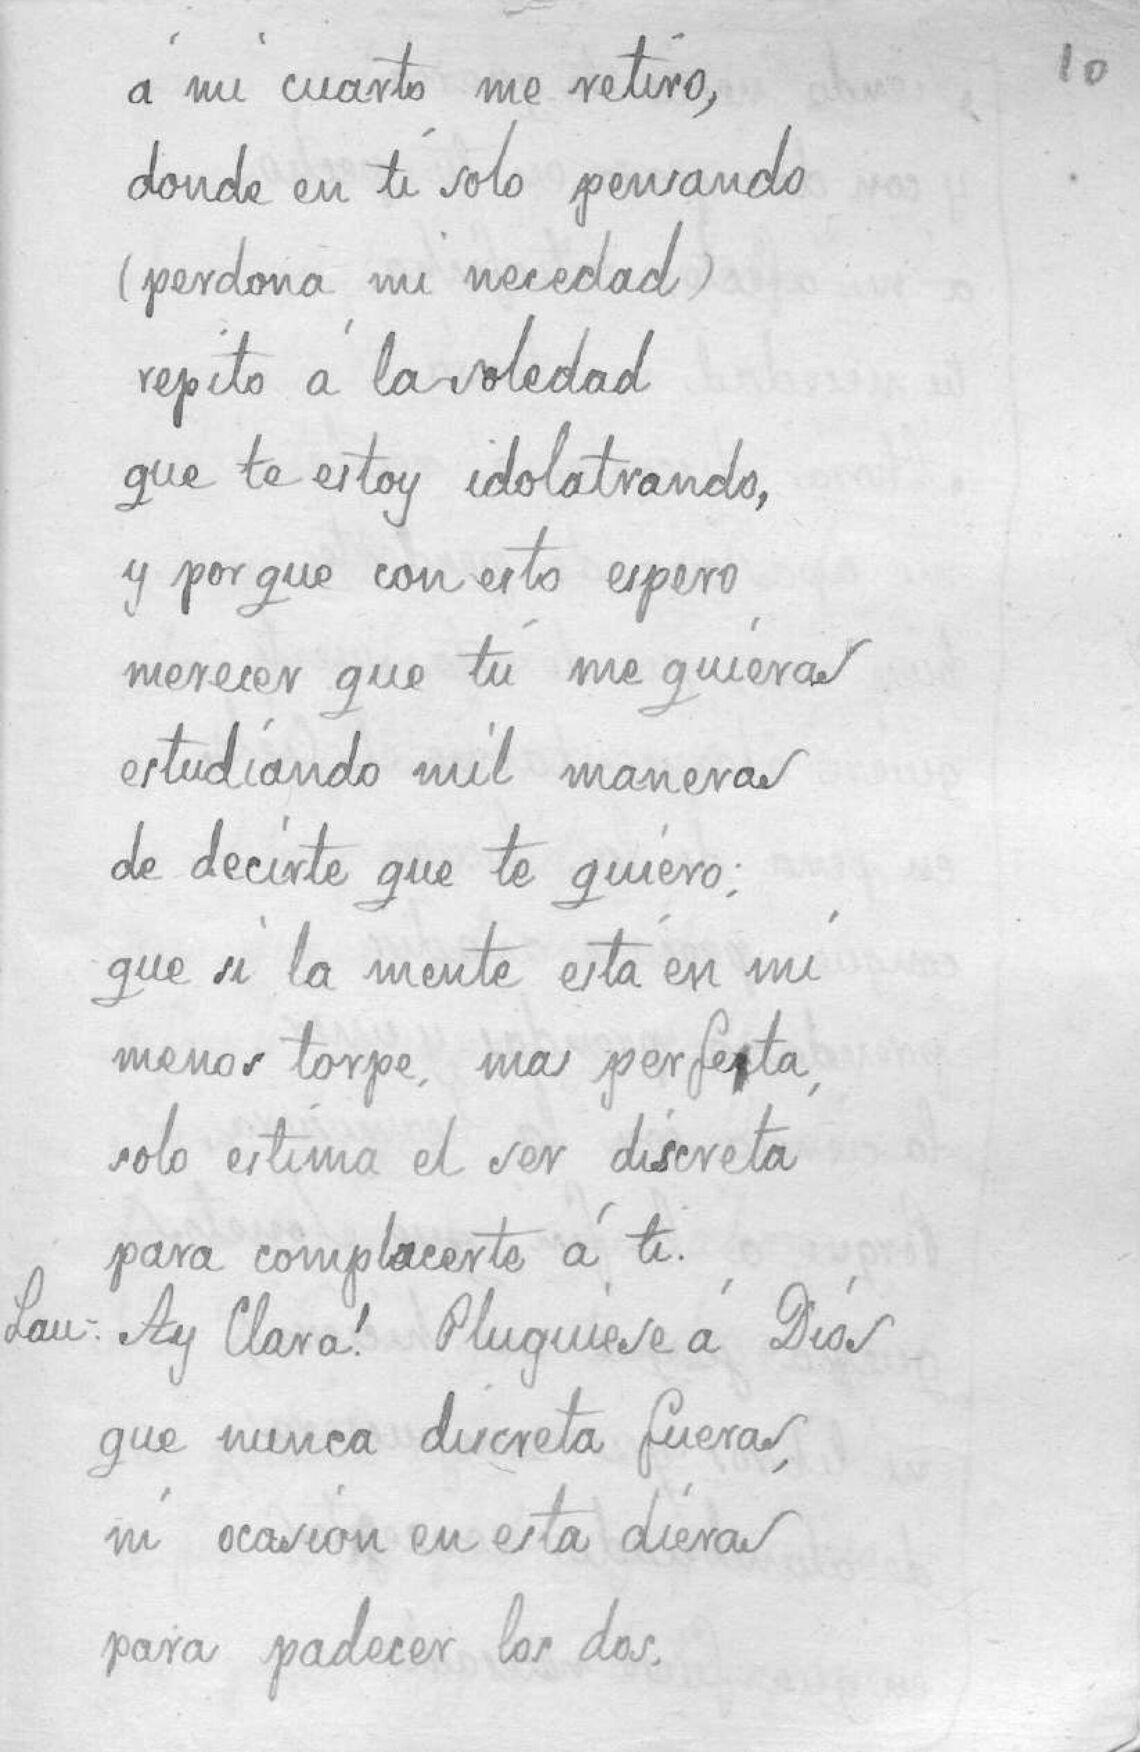 10
á mi cuarto me retiro,
donde en ti solo pensando
(perdona mi necedad)
repito á la soledad
que te estoy idolatrando,
y porque con esto espero
merecer que tú me quieras
estudiando mil maneras
de decirte que te quiero;
que si la mente está en mi
menos torpe, mas perfecta,
solo estima el ser discreta
para complacerte á ti.
Lau-. Ay Clara! Pluguiese á Dios
que nunca discreta fueras,
ni ocasion en esta dieras
para padecer los dos.